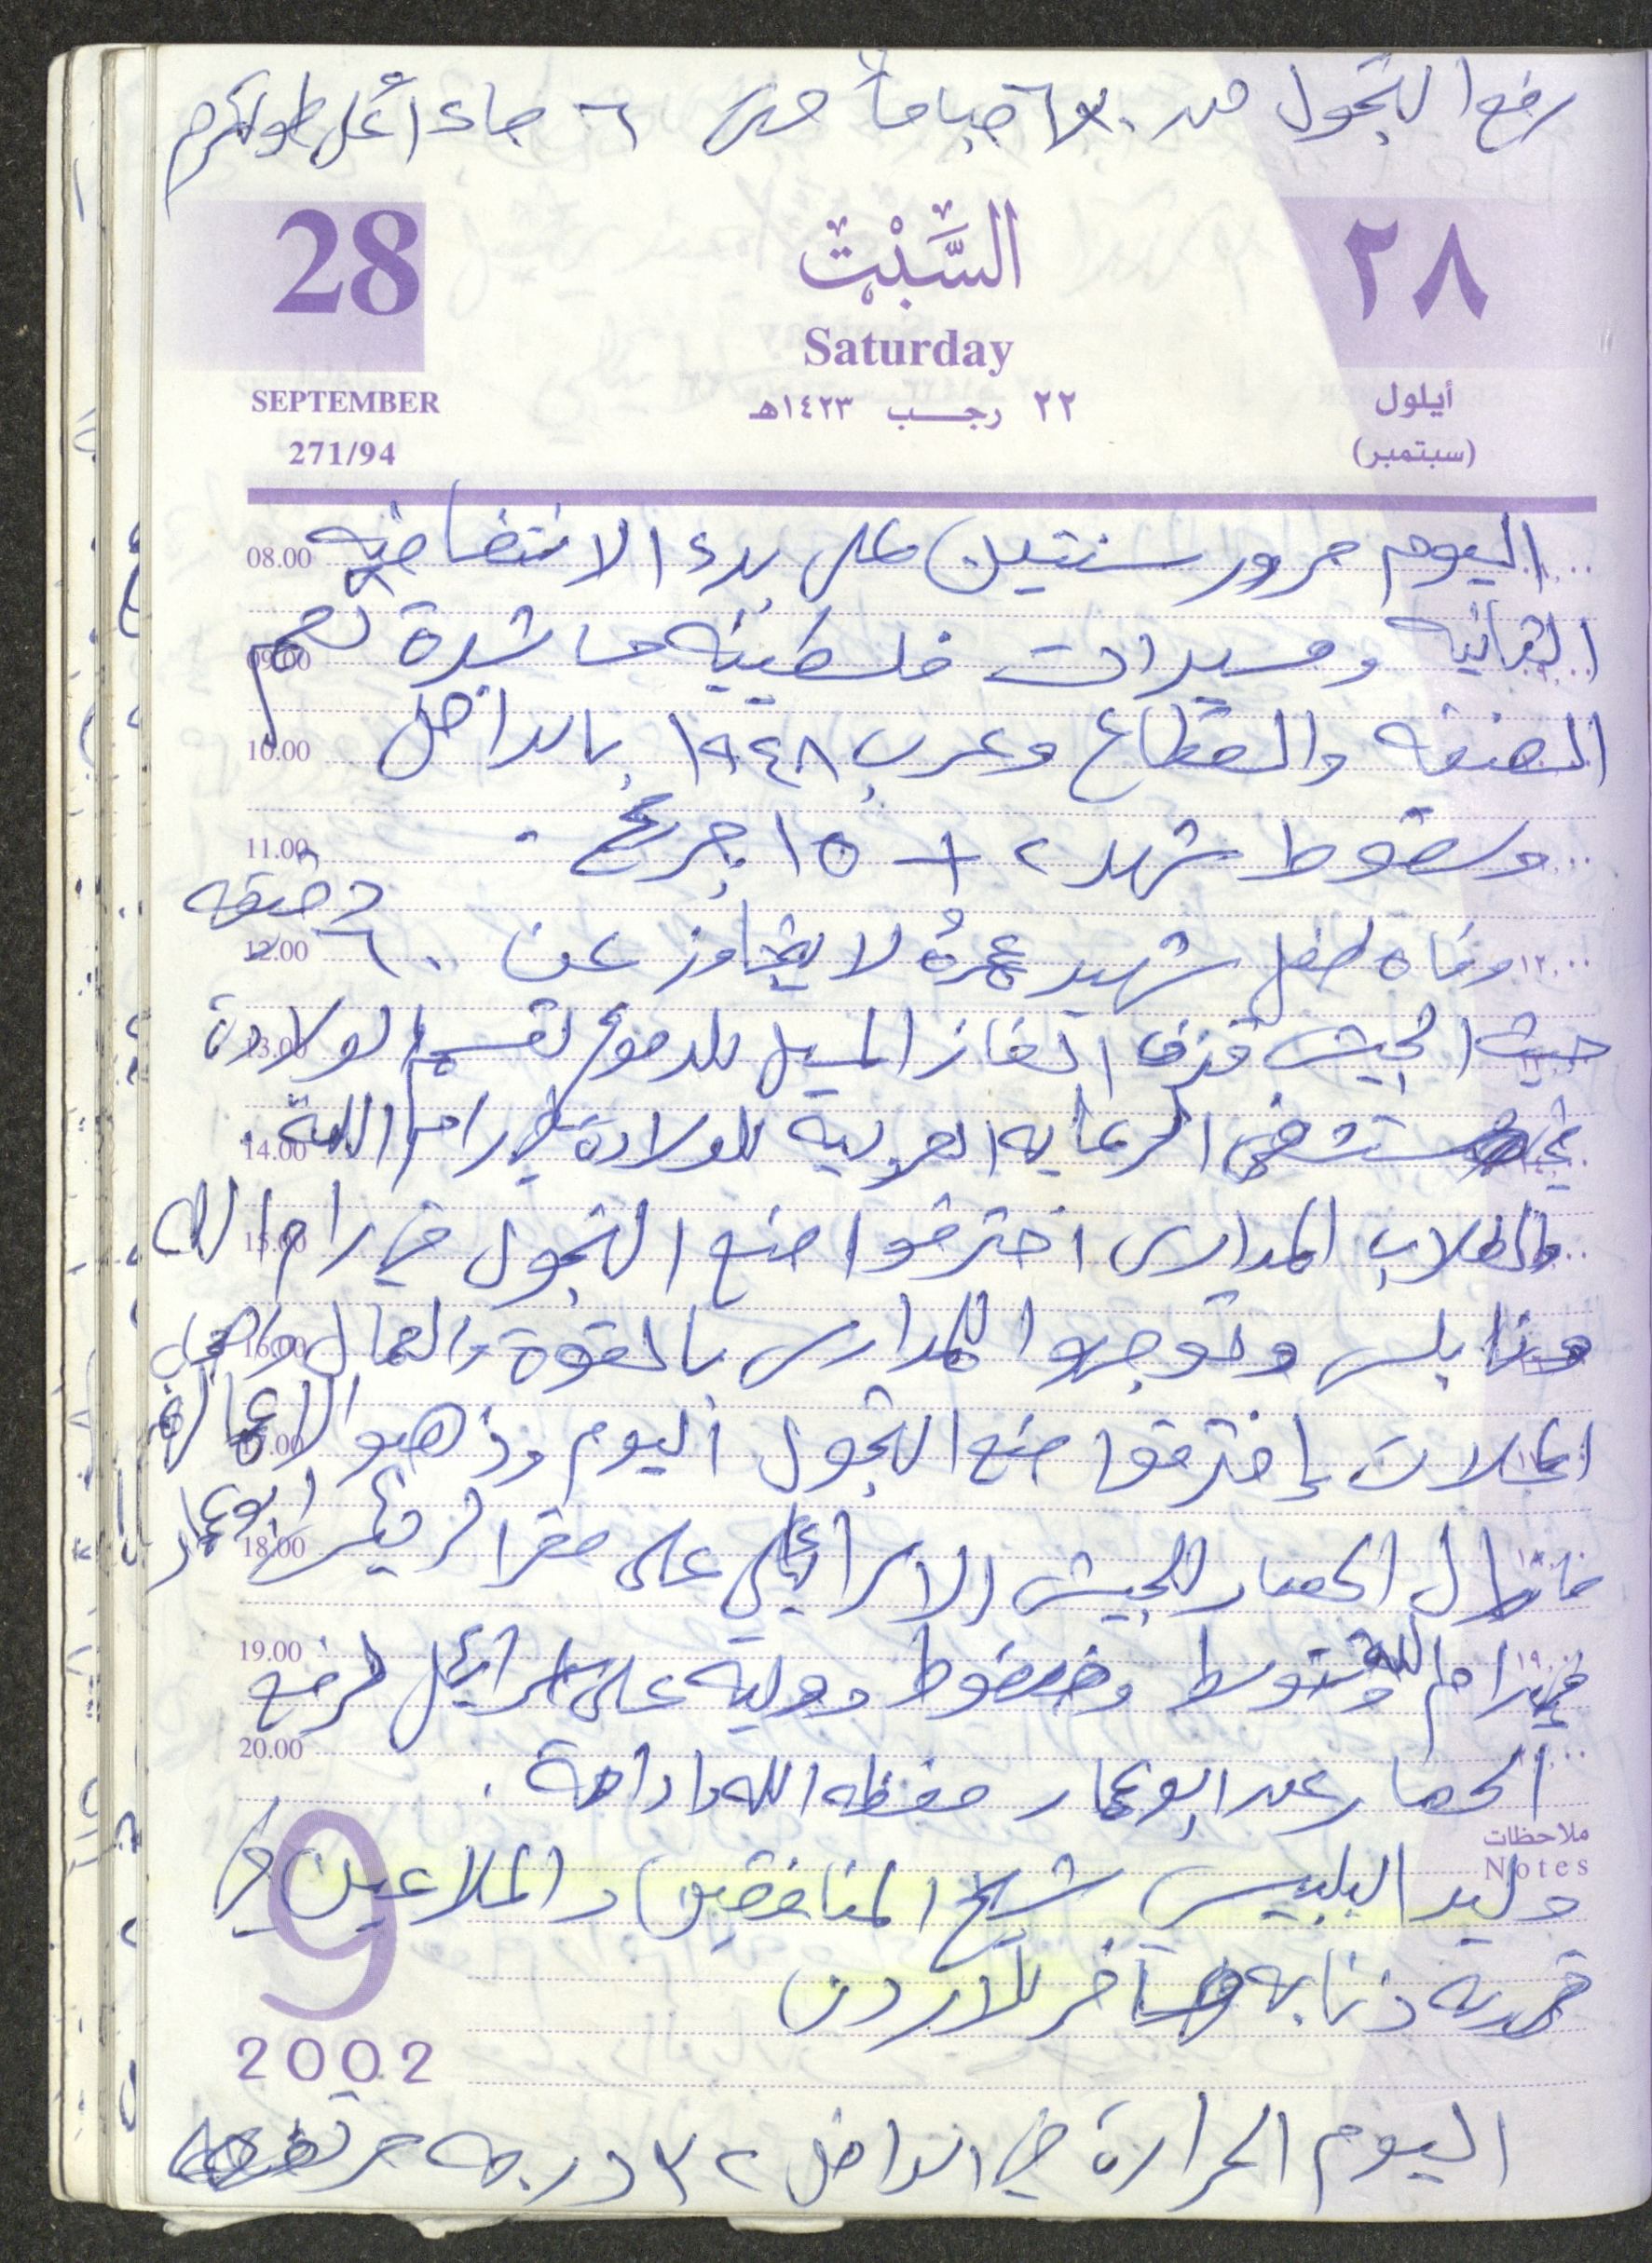 رفع التجول من صباحاً حتى ٦ مساء أعلى طولكرم
28
السَّبْت
٢٨
Saturday
SEPTEMBER
٢٢ رجب ١٤٢٣هـ
أيلول
271/94
(سبتمبر)
08.00 اليوم مرور سنتين على بدء الانتفاضه
09.00 الثانيه ومسيرات فلسطينيه حاشدة تعم
10.00 الضفه والقطاع وعرب ١٩٤٨ بالداخل
11.00 وسقوط شهد ٢ + ١٥ جريح.
12.00 وفاه طفل شهيد عمرهُ لا يتجاوز عن ٦٠ دقيقه ١٢.٠٠
13.00 حيث الجيش قذف الغاز المسيل للدموع لقسم الولادة
14.00 في مستشفى الرعايه العربيه للولادة في رام الله.
15.00 والطلاب المدارس اخترقوا منع التجول في رام الله
16.00 ونابلس وتوجهوا للمدارس بالقوة والعمال
17.00 المحلات إخترقوا منع التجول اليوم وذهبو
18.00 مازال الحصار للجيش الاسرائيلي على مقر الرئيس ابو عمار
19.00 في رام الله وتتوسط وضغوط دوليه على اسرائيل لرفع
20.00 الحصار عن ابو عمار حفظه الله وادامة.
ملاحظات
Notes
وليد البلبيسي شيخ المنافقين والملاعين في
قريه ذنابه سافر للاردن
9
2002
اليوم الحرارة في الداخل ٣٢ درجه مرتفعه